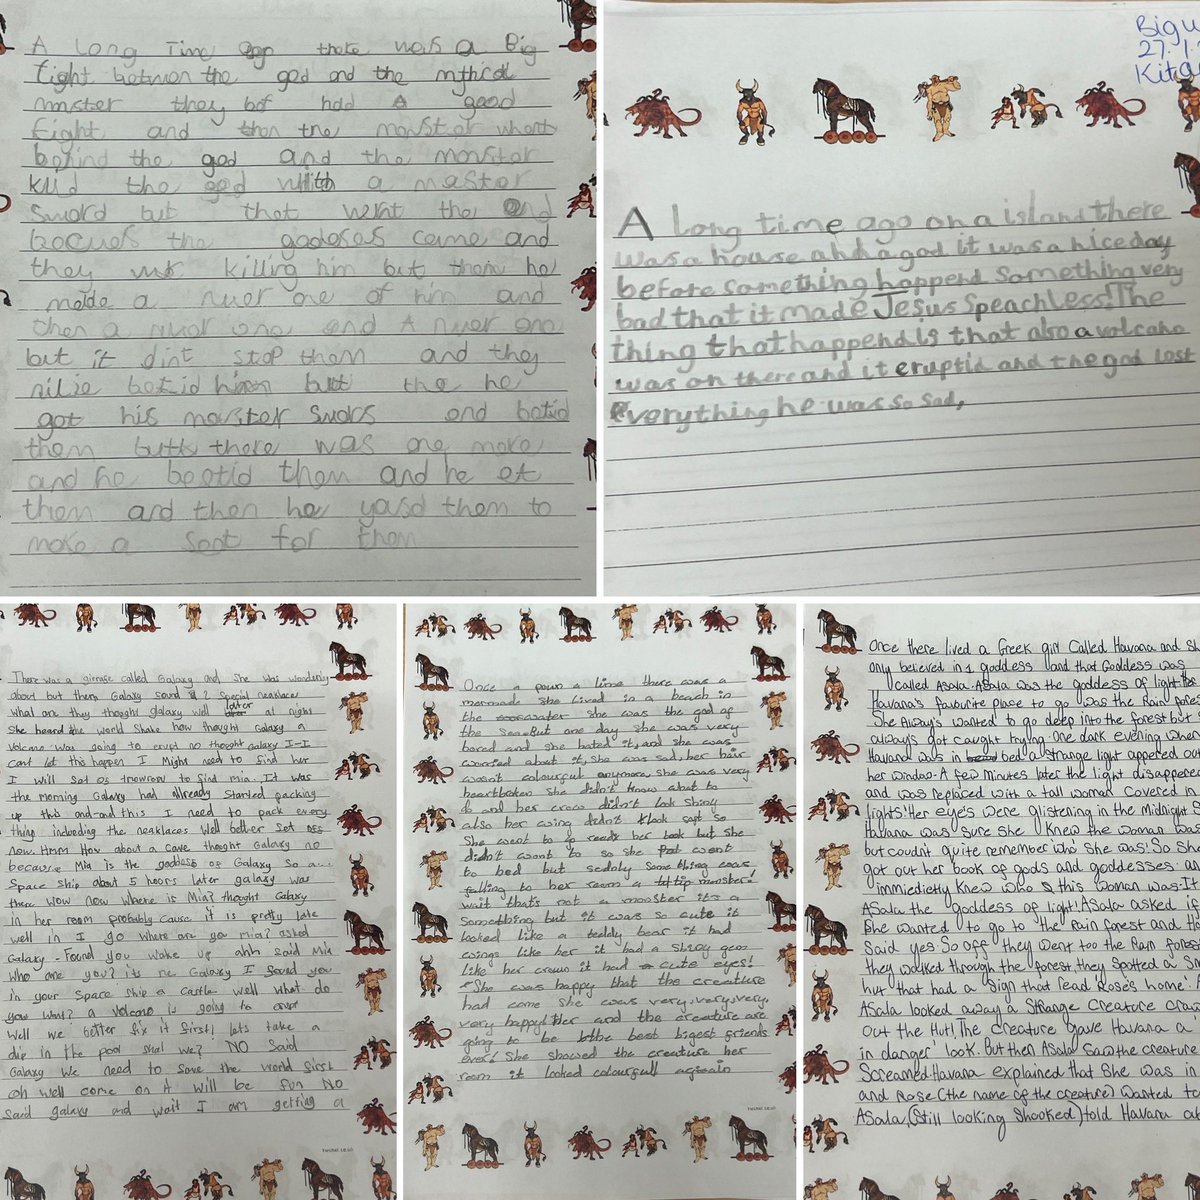 A Long Time ago there was a Big
fight between the god and the mythical
monster they bof had A good
fight and then the monster whent
behind the god and the monster
kild the god with a master
Sword but that wernt the end
becues the godeses came and
they killing him but then he
made a nuer one of him and
then a nuer one and A nuer one
but it dint stop them and they
nilie betid him but the he
got his monster swors and betid
them butt there was one more
and he beetid them and he et
them and then he yousd them to
make a for them
Bigu
27.1.
Kita
A Long time ago on a island there
was a house and a god it was a nice day
before something happend Something very
bad that it made Jesus Speachless! The
thing that happend is that also a volcano
was on there and it eruptid and the god lost
everything he was so sad,
There was a girrafe called Galaxy and She was wondering
about but then Galaxy Special necklaces
what are they thought glalaxy well later at night
She heard the world Shake how thought Galaxy a
Volcano was going to erupt no thought Galaxy I-I
cant let this happen I Might need to find her
I will Set of tmowrow to find mia. It was
the morning Galaxy had allready Started packing
up this and and this I need to pack every
thing including the necklaces Well better Set off
now. Hmm How about a cave thought Galaxy no
because Mia is the goddess of Galaxy So a...
Space Ship about 5 hours later galaxy was
there Wow now Where is Mia? thought Galaxy
in her room probably Cause it is pretty late
well in I go Where are you mia? asked
Galaxy - Found you wake up ahh Said Mia
Who are you? it me Galaxy I found you
in your Space Ship a Castle Well what do
you want? a volcano is going to erupt
Well we better fix it first! lets take a
dip in the pool shal we? NO Said
Galaxy We need to Save the world first
oh well come on it will be fun NO
Said galaxy and wait I am getting a
Once a poun a time there was a
mermade she lived in a beach in
the She was the god of
the Sea. But one day she was very
bored and she hated it, and she was
worried about it, She was sad, her hair
wasnt colourful anymore, She was very
heartboken she didn't know what to
do and her crow didn't look Shiny
also her wing didn't look soft so
She went to go reade her book but She
didn't want to so she went
to bed but sednly Something was
falling to her room a monster!
wait that's not a monster it's a
Something but it was so cute it
looked like a teddy bear it had
wings like her it had a Shiny gem
like her crown it had cute eyes!
She was happy that the creature
had come She was very, very, very,
very happy! Her and the creature are
going to be the best biggest friends
ever! She showed the creature her
room it looked colourfull agieain
twinkl.co.uk
twinkl.co.uk
Once there lived a Greek girl Called Havana and Sh
only believed in 1 goddess and that Goddess was
called Asala. Asala was the goddess of light.
Havana's favourite place to go was the Rain fore
She Always wanted to go deep into the forest but
always got caught trying. One dark evening when
Havana was in bed a strange light appered ou
her window. A few minutes later the light disappere
and was replaced with a tall woman Covered in
lights! Her eyes were glistening in the Midnight
Havana was sure she Knew the woman wa
but coudn't quite remember who she was! So She
got out her book of gods and goddesses an
immedietly Knew who this woman was. It
Asala the goddess of light! Asala asked if
She wanted to go to the Rain forest and th
Said yes So off they went too the Rain fores
they walked through the forest, they Spotted a Sm
hut that had a sign that read Rose's home. A
Asala looked away a Strange Creature Craw
out the Hut! The creature gave Havana a
in danger' look. But then Asala Saw the creature
Screamed. Havana explained that She was in
and Rose (the name of the creature) wanted to
Asala, (Still looking Shooked) told Havana ab